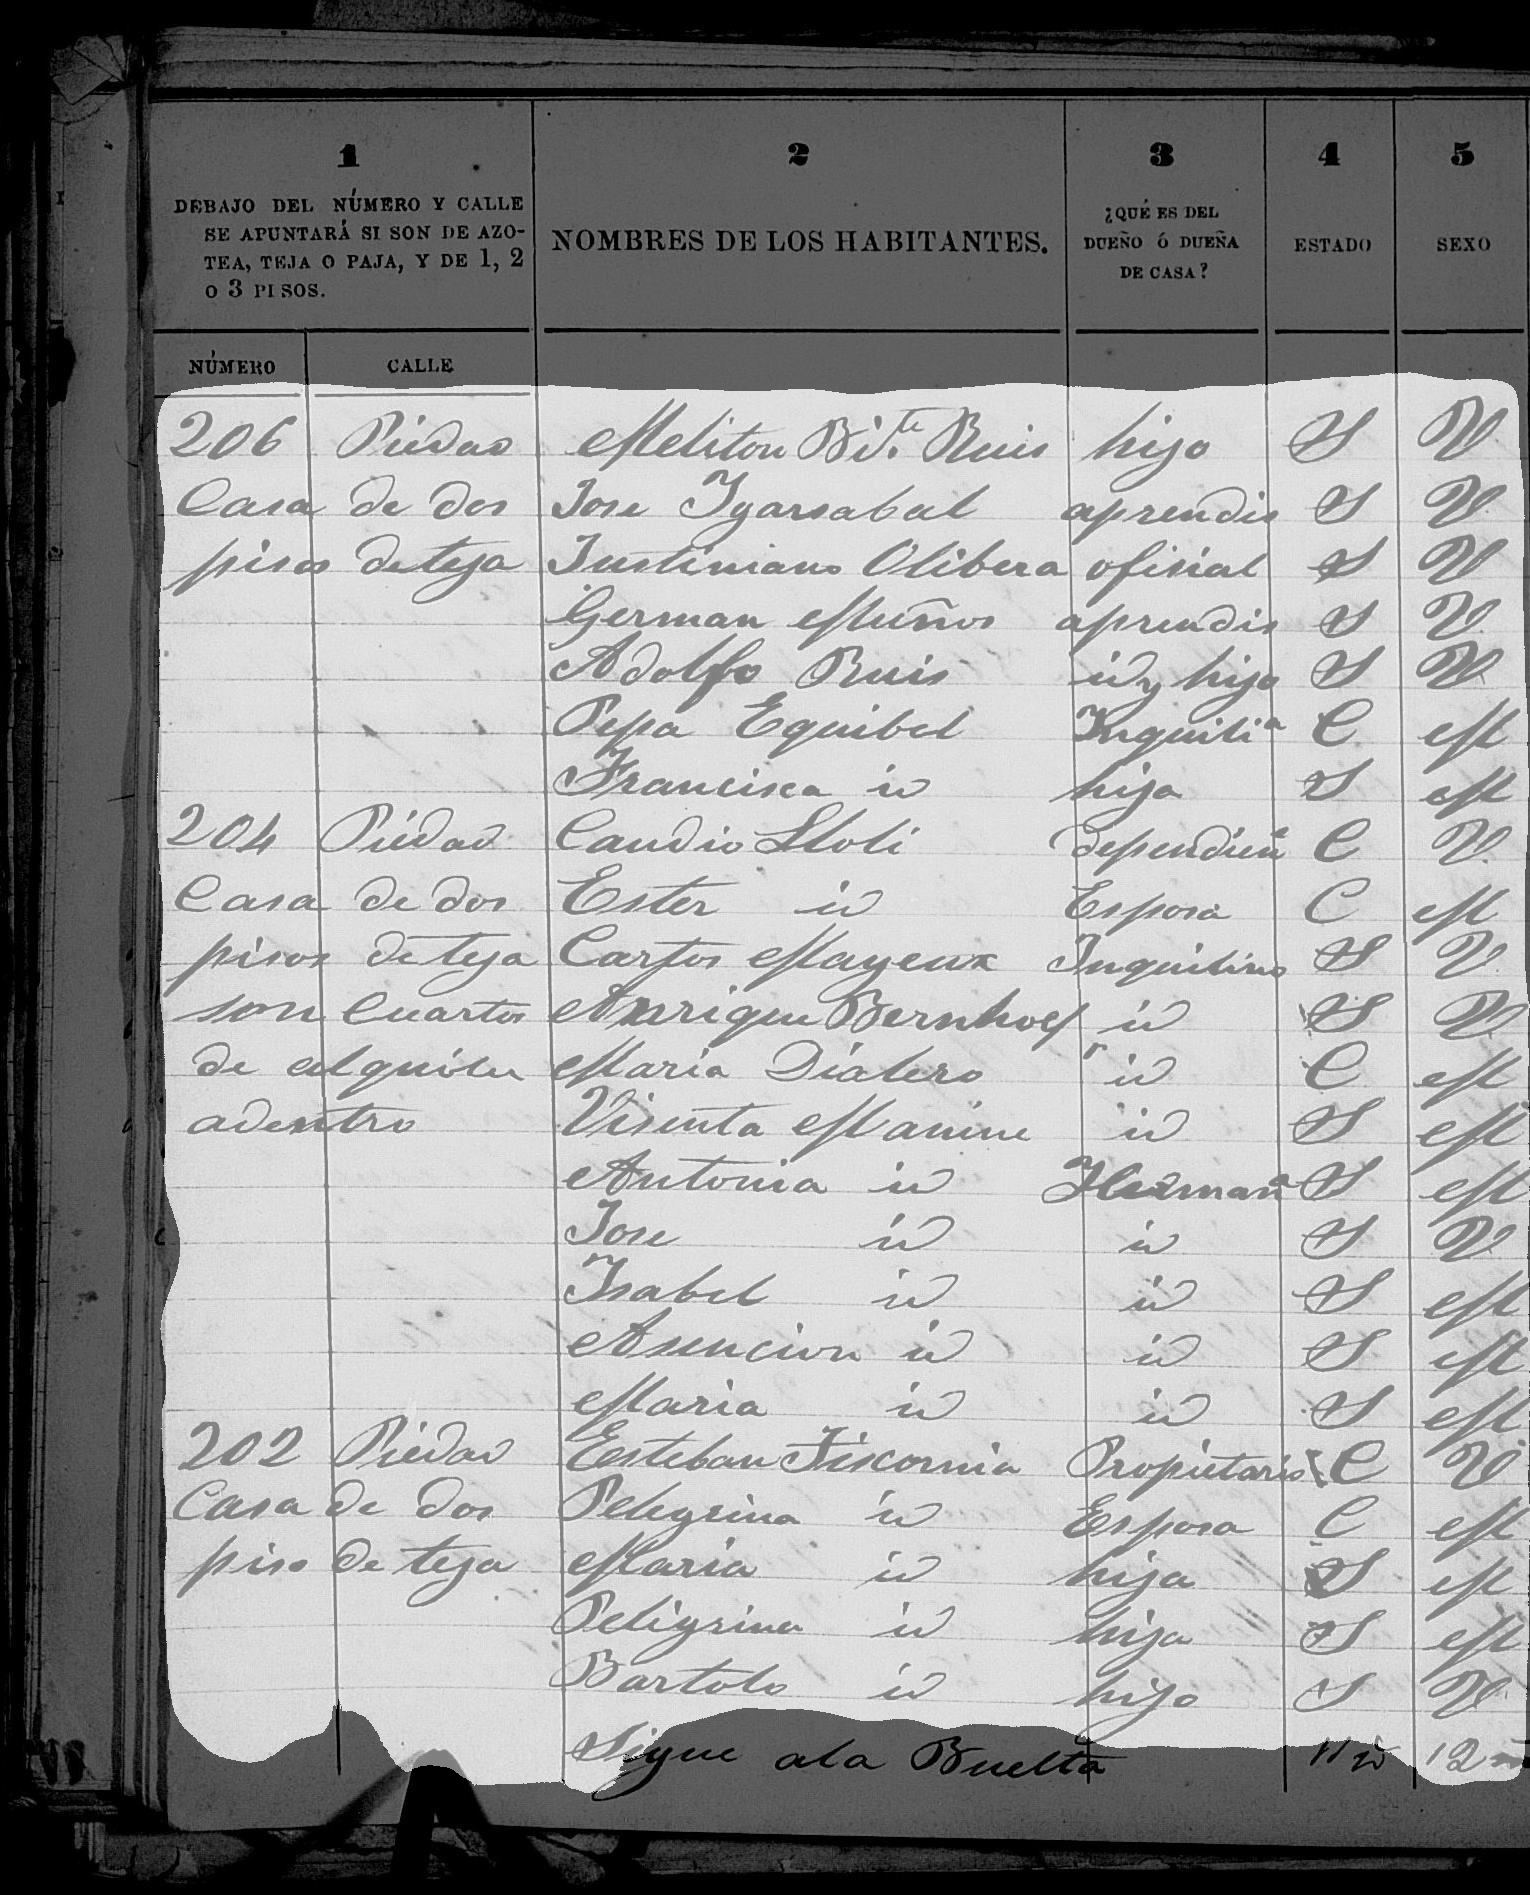 1 2 3 4 5
DEBAJO DEL NÚMERO Y CALLE
SE APUNTARÁ SI SON DE AZO-
TEA, TEJA O PAJA, Y DE 1, 2
O 3 PISOS.
NOMBRES DE LOS HABITANTES.
¿QUÉ ES DEL
DUEÑO Ó DUEÑA
DE CASA?
ESTADO
SEXO
NÚMERO CALLE
206 Piedad Meliton Bi.te Ruis hijo S V
Casa de dos Jose Ygarsabal aprendis S V
pisos de teja Justiniano Olibera ofisial S V
German Muños aprendis S V
Adolfo Ruis id y hijo S V
Pepa Equibel Ynquilia C M
Francisca id hija S M
204 Piedad Caudio Stoli dependien C V
Casa de dos Ester id Esposa C M
pisos de teja Carlos Mayeux Inquilino S V
son Cuartos Anrique Bernhoef id S V
de alquiler Maria Dialero id C M
adentro Visenta Manine id S M
Antonia id Herman S M
Jose id id S V
Isabel id id S M
Asuncion id id S M
Maria id id S M
202 Piedad Esteban Fiscornia Propietario C V
Casa de dos Pelegrina id Esposa C M
piso de teja Maria id hija S M
Peligrina id hija S M
Bartolo id hijo S V
Sigue a la Buelta 11 id 12